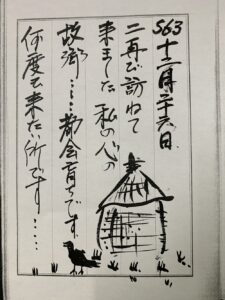 S63 十二月二十六日
二再び訪ねて
来ました 私の心の
故郷……都会育ちです
何度も来たい所です……